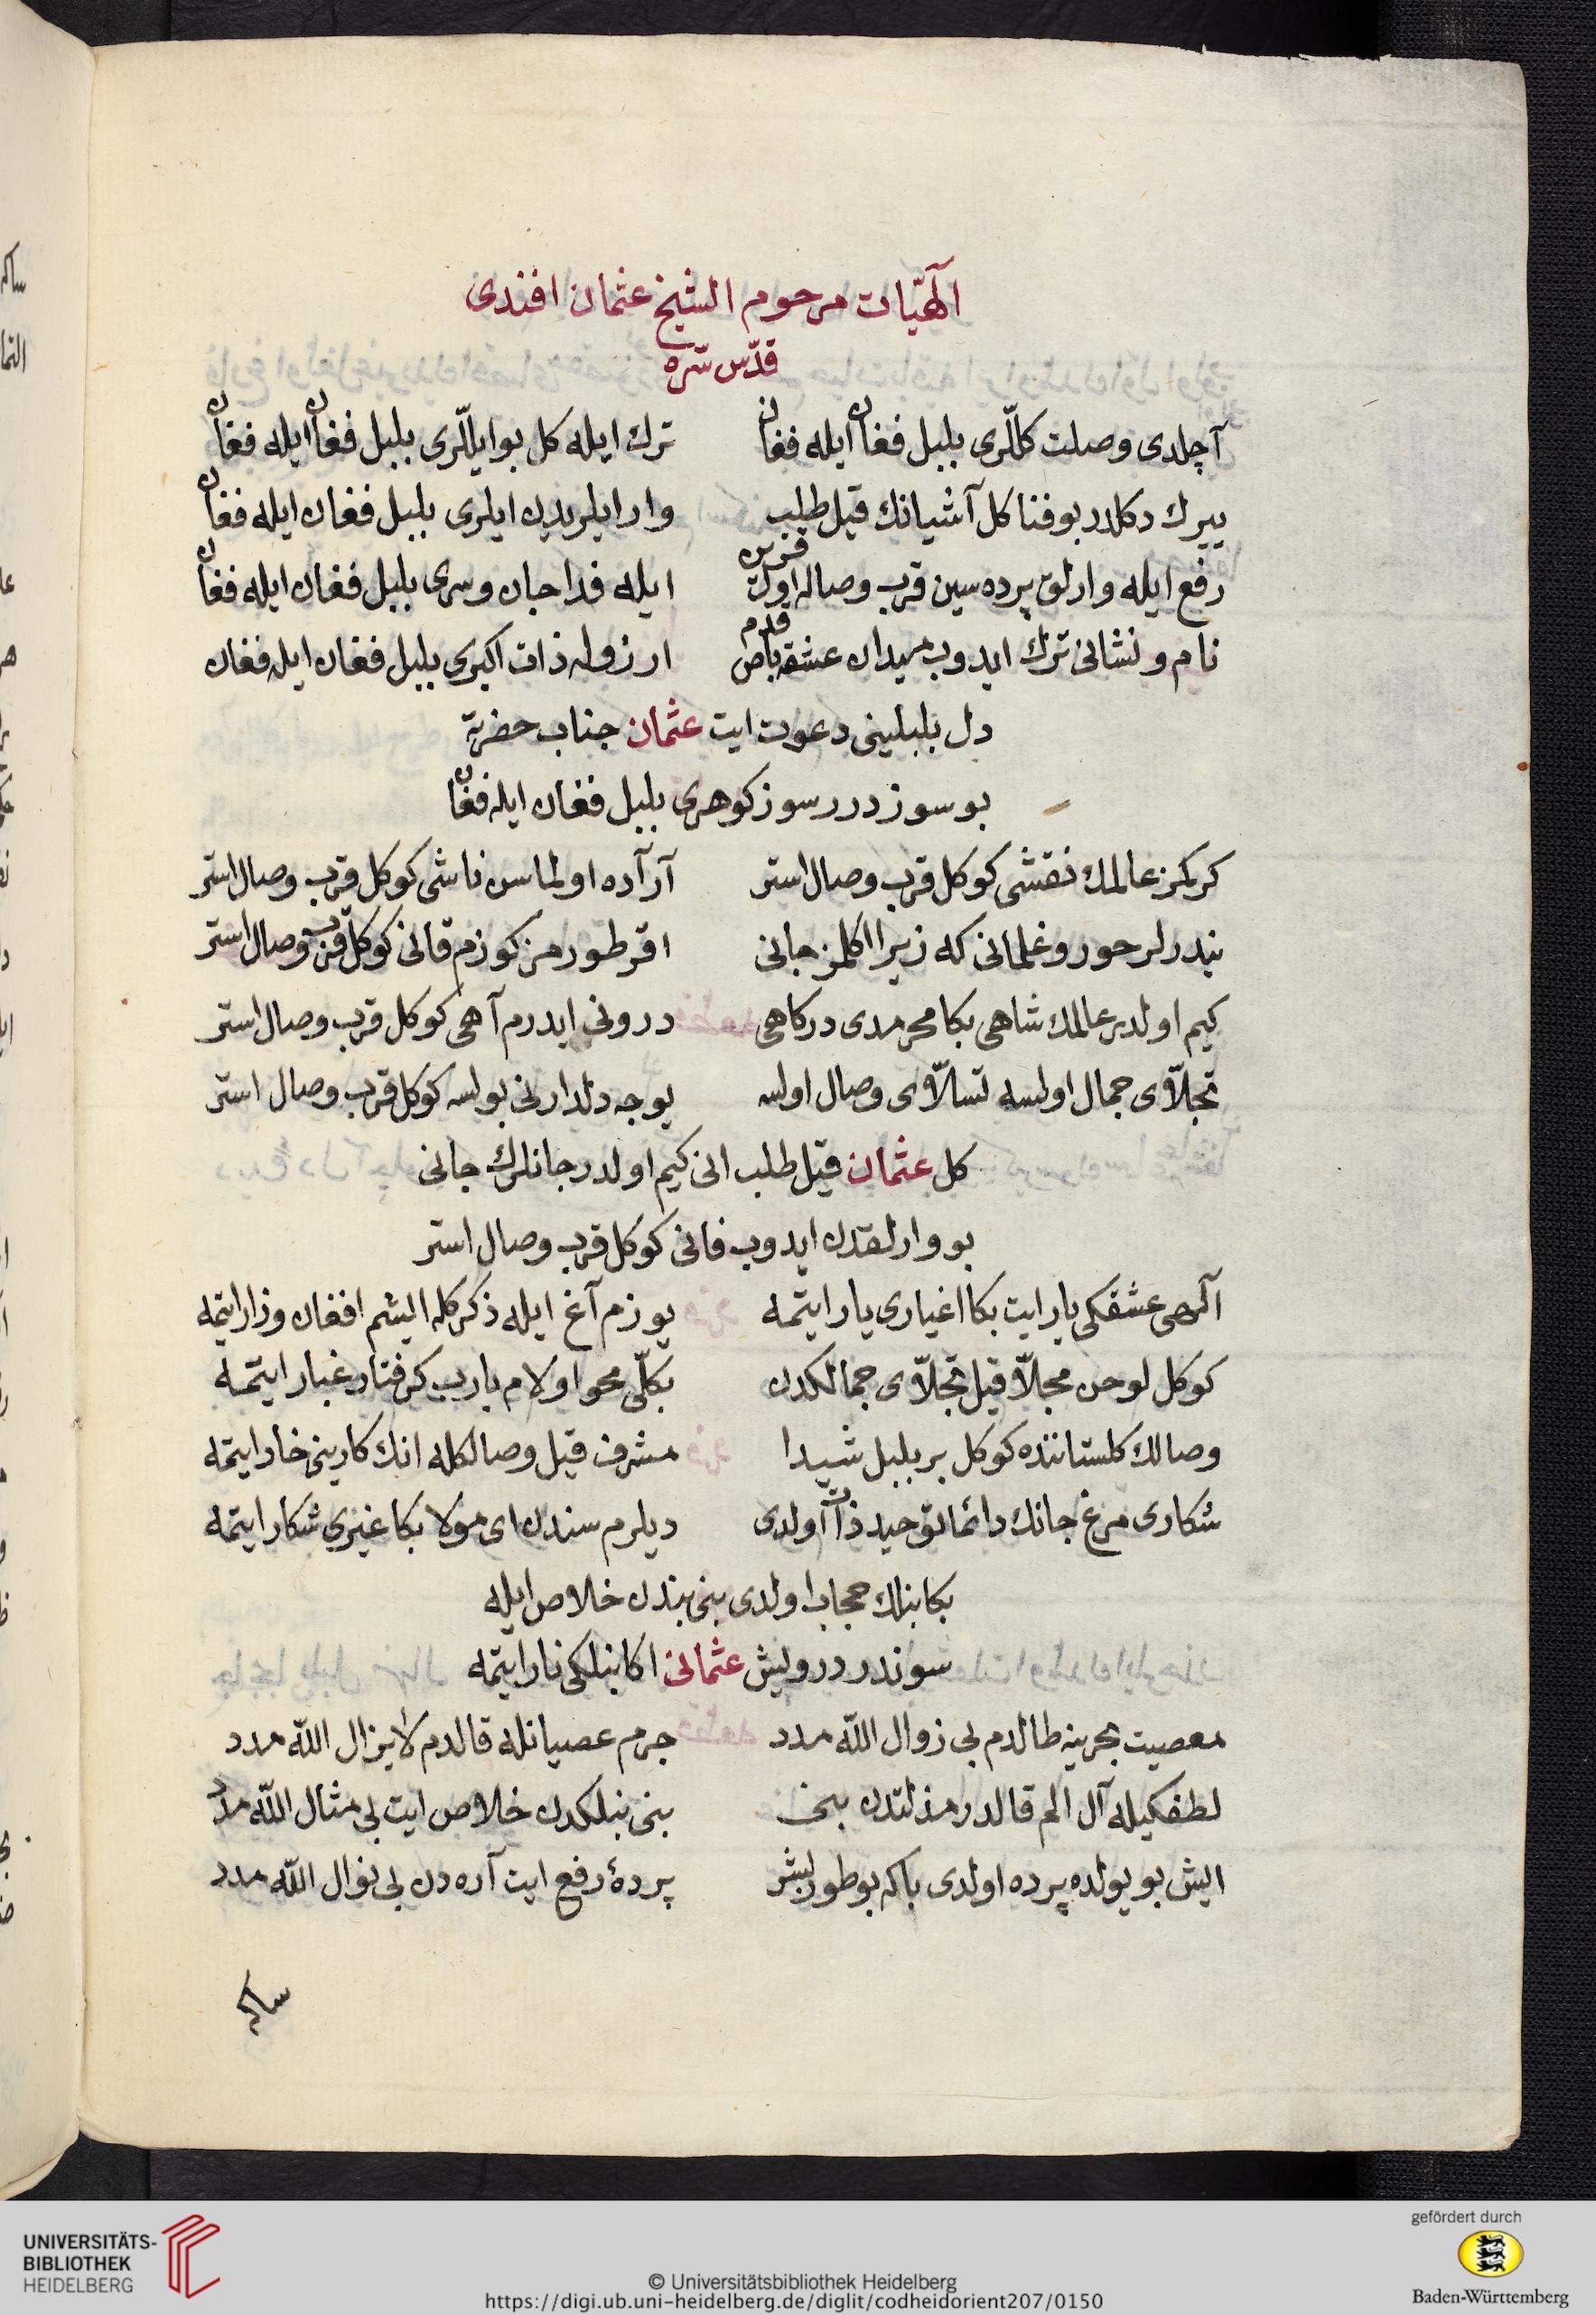 الٓهيّات مرحوم الشيخ عثمان افندى
قدّس سّره
آچلدى وصلت كلّرى بلبل فغان ايله فغان ترك ايله كل بو ايللّرى بلبل فغان ايله فغان
ييرك دكلدر بو فنا كل آشيانك قيل طلب وار ايلريدن ايلرى بلبل فغان ايله فغان
رفع ايله وارلق پرده سين قرب وصاله اول ايله فدا جان و سرى بلبل فغان ايله فغان
نام و نشانى ترك ايدوب ميدان عشقه باص قدم ارزوله ذات اكبرى بلبل فغان ايله فغان
دل بلبلينى دعوت ايت عثمان جناب حضرته
بو سوز درر سوز كوهرى بلبل فغان ايله فغان
كركمز عالمك نقشى كوكل قرب وصال استر آر آده اولماسن ناشى كوكل قرب وصال استر
نيدرلر حور و غلمانى كه زيرا اكلمز جانى اقر طورمز كوزم قانى كوكل قرب وصال استر
كيم اولدر عالمك شاهى بكا محرمدى دركاهى درونى ايدرم آهى كوكل قرب وصال استر
تجلاّى جمال اولسه تسلاّى وصال اولسه يوجه دلدارنى بولسه كوكل قرب وصال استر
كل عثمان قيل طلب انى كيم اولدر جانلرك جانى
بو وارلقدن ايدوب فانى كوكل قرب وصال استر
الٓهى عشقكى يار ايت بكا اغيارى يار ايتمه يوزم آغ ايله ذكركله ايشم افغان وزار ايتمه
كوكل لوحن مجلاّ قيل تجلاّى جمالكدن بكلّى محو اولام يارب كرفتار غبار ايتمه
وصالك كلستاننده كوكل بر بلبل شيدا مشرف قيل وصالكله انك كارينى خار ايتمه
شكارى مرغ جانك دائما توحيد ذات اولدى ديلرم سندن اى مولا بكا غيرى شكار ايتمه
بكا بنلك حجاب اولدى بنى بندن خلاص ايله
سوندر درويش عثمانى اكا بنلكى نار ايتمه
معصيت بحرينه طالدم بى زوال اللّه مدد جرم عصيانله قالدم لايزال اللّه مدد
لطفكيله آل الم قالدر مذلتدن بنى بنلكدن خلاص ايت بى مثال اللّه مدد
ايش بو يولده پرده اولدى باكه بو طور بشر پردۀ رفع ايت آره دن بى نوال اللّه مدد
UNIVERSITÄTS-
BIBLIOTHEK
HEIDELBERG
© Universitätsbibliothek Heidelberg
https://digi.ub.uni-heidelberg.de/diglit/codheidorient207/0150
gefördert durch
Baden-Württemberg